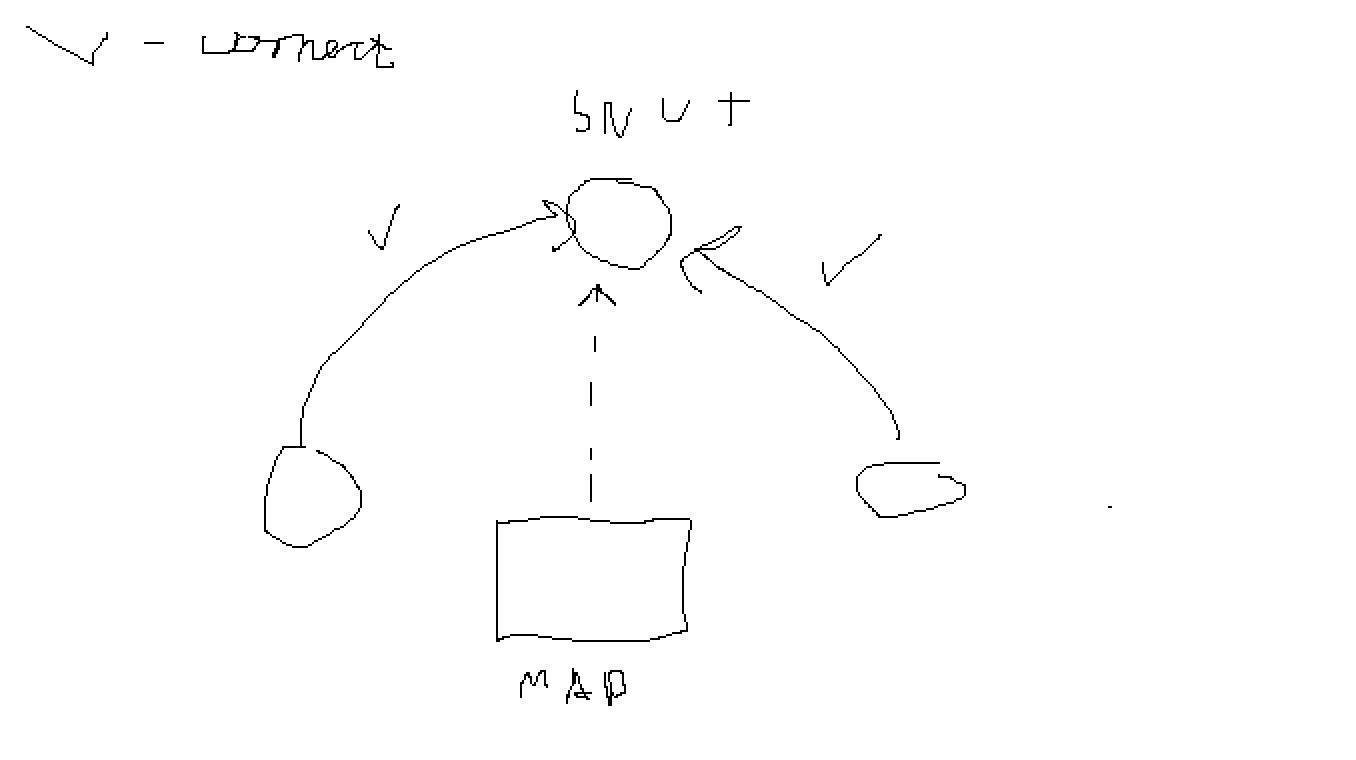 ✓ - correct
SNUT
MAP